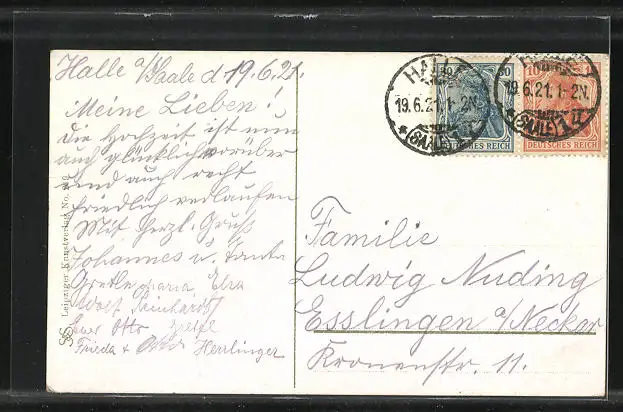 Halle a/Saale d 19.6.21.
Meine Lieben!
Die Hochzeit ist nun
auch glücklich vorüber
und auch recht
friedlich verlaufen
Mit herzl. Gruß
Johannes u. Tante
Gretle Maria Elsa
Adolf Reinhardt
Euer Otto
Frieda + Herrlinger
Familie
Ludwig Nuding
Esslingen a/Neckar
Kronenstr. 11.
HALLE
19.6.21. 1-2N.
*(SAALE)
DEUTSCHES REICH
10
19.6.21. 1-2N.
*(SAALE)
DEUTSCHES REICH
Leipziger Kunstverlag No.